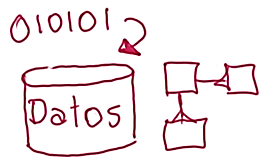 010101
Datos